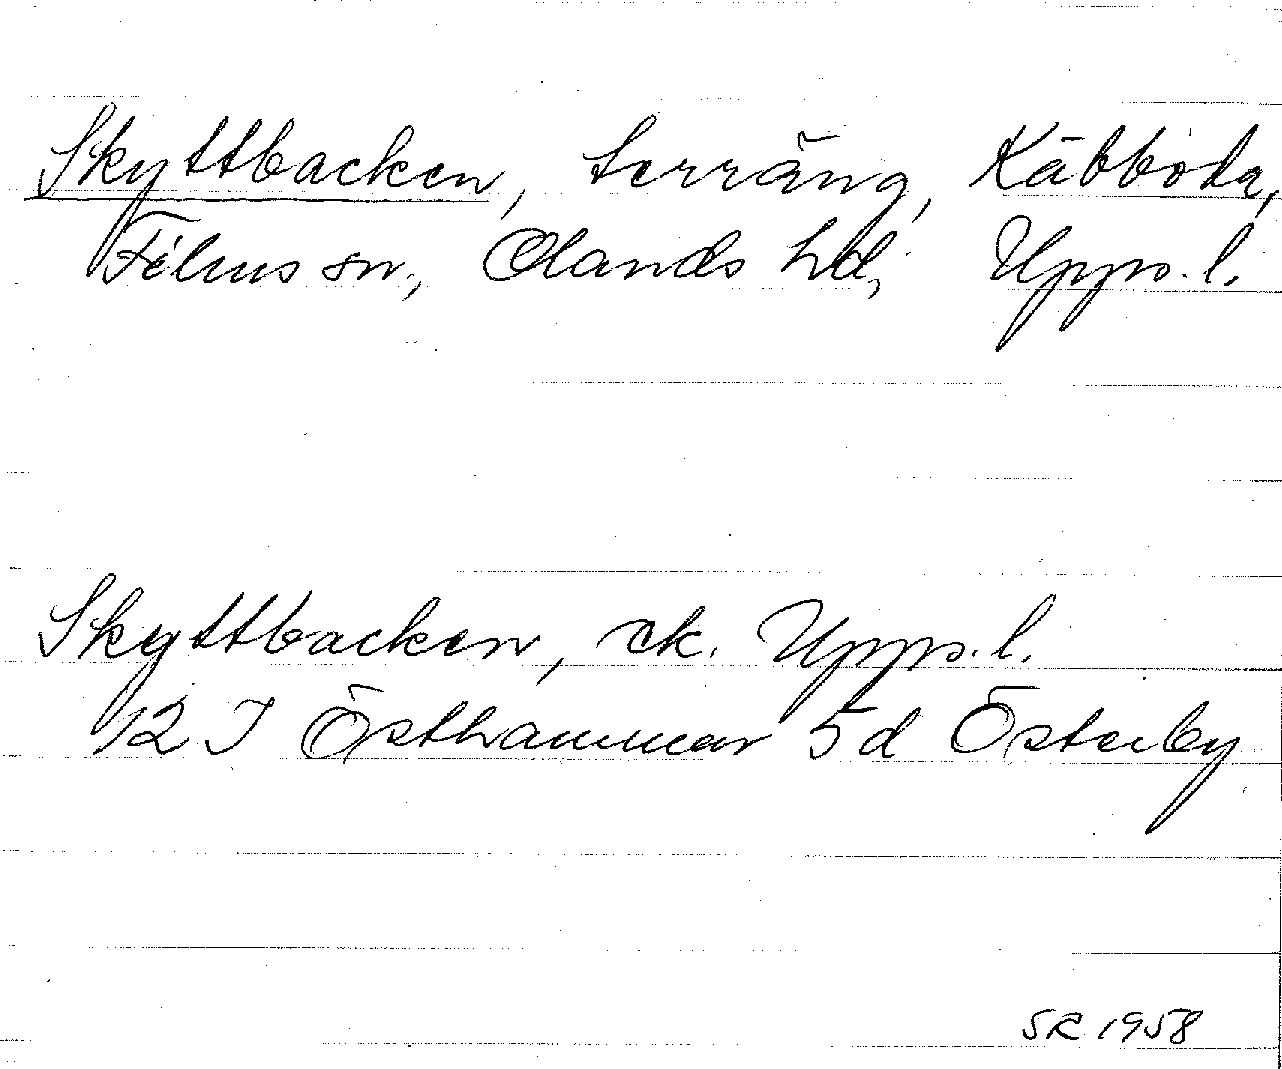 Skyttbacken, terräng, Käbboda,
Films sn., Olands hd, Upps. l.
Skyttbacken, ek. Upps. l.
12 I Östhammar 5d Österby
SR 1958